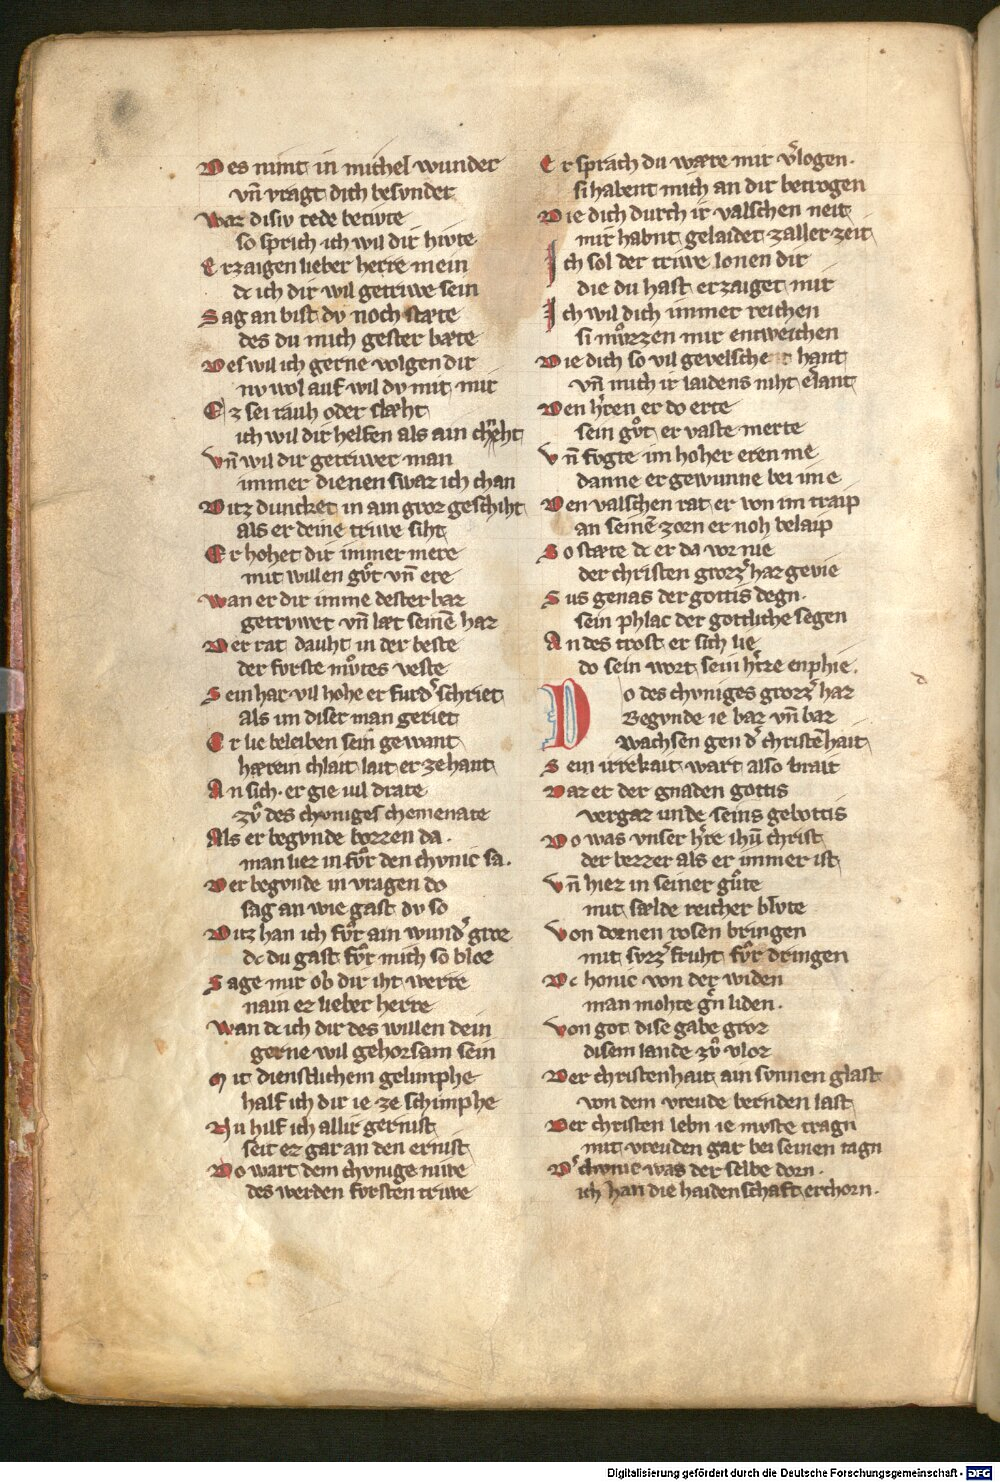 Des nimt in michel wunder
vn̄ vragt dich besvnder
Waz disiv rede betivte
so sprich ich wil dir hivte
Erzaigen lieber herre mein
dc ich dir wil getriwe sein
Sag an bist dv noch stæte
des du mich gester bæte
Des wil ich gerne volgen dir
nv wol auf wil dv mit mir
Ez sei rauh oder slæht
ich wil dir helfen als ain chneht
Vn̄ wil dir getriwer man
immer dienen swaz ich chan
Ditz duncket in ain groz geschiht
als er deine triwe siht
Er hohet dir immer mere
mit willen gv̊t vn̄ ere
Wan er dir imme dester baz
getrvwet vn̄ læt seinē haz
Der rat dauht in der beste
der fvrste mv̊tes veste
Sein har vil hohe er furd͛ schriet
als im diser man geriet
Er lie beleiben sein gewant
hærein chlait lait er zehant
An sich. er gie vil drate
zv̊ des chvniges chemenate
Als er begvnde bozzen da.
man liez in fv̊r den chvnic sa.
Der begvnde in vragen do
sag an wie gast dv so
Ditz han ich fv̊r ain wund͛ groz
dc du gast fv̊r mich so bloz
Sage mir ob dir iht werre
nain ez lieber herre
Wan dc ich dir des willen dein
gerne wil gehorsam sein
Mit dienstlichem gelimphe
half ich dir ie ze schimphe
Nu hilf ich allir gernist
seit ez gar an den ernist
Do wart dem chvnige niwe
des werden fvrsten triwe
Er sprach du wære mir v͛logen.
si habent mich an dir betrogen
Die dich durch ir valschen neit
mir habnt gelaidet zaller zeit
Ich sol der triwe lonen dir
die du hast erzaiget mir
Ich wil dich immer reichen
si mv̊zzen mir entweichen
Die dich so vil gevelschet hant
vn̄ mich ir laidens niht erlant
Den h͛ren er do erte
sein gv̊t er vaste merte
Vn̄ fvgte im hoher eren me
danne er gewunne bei im e
Den valschen rat er von im traip
an seinē zorn er noh belaip
So stæte dc er da vor nie
der christen grozz͛ haz gevie
Sus genas der gottis degn.
sein phlac der gottliche segen
An des trost er sich lie
do sein wort sein h͛rze enphie.
Do des chvniges grozz͛ haz
Begvnde ie baz vn̄ baz
Wachsen gen d͛ christēhait
Sein irrekait wart also brait
Daz er der gnaden gottis
vergaz unde seins gebottis
Do was vnser h͛re ihū christ
der bezzer als er immer ist
Vn̄ hiez in seiner gv̊te
mit sælde reicher blv̊te
Von dornen rosen bringen
mit svzz͛ fruht fv̊r dringen
Dc honic von der widen
man mohte g͛n liden.
Von got dise gabe groz
disem lande zv̊ vloz
Der christenhait ain svnnen glast
von dem vreude bernden last
Der christen lebn ie mvste tragn
mit vreuden gar bei seinen tagn
D͛ chvnic was der selbe dorn.
ich han die haidenschaft erchorn.
Digitalisierung gefördert durch die Deutsche Forschungsgemeinschaft - DFG